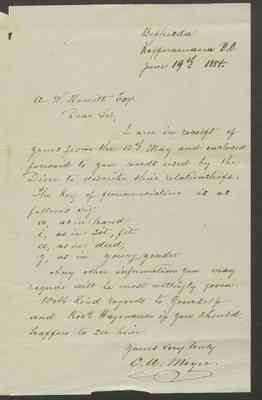 Bethesda
Kopperamana P.O.
June 19th 1885.
A. W. Howitt Esq.
Dear Sir,
I am in receipt of
yours from the 12th May and enclosed
forward to you words used by the
Dieri to describe their relationships.
The Key of pronunciation is as
follows viz:
a, as in hard
i, as in sit, fit
u, as in
g, as in going, gander
Any other information you may
require will be most willingly given.
With kind regards to Yourself
and Revd Hagenauer if you should
happen to see him
Yours very truly
C. A. Meyer.